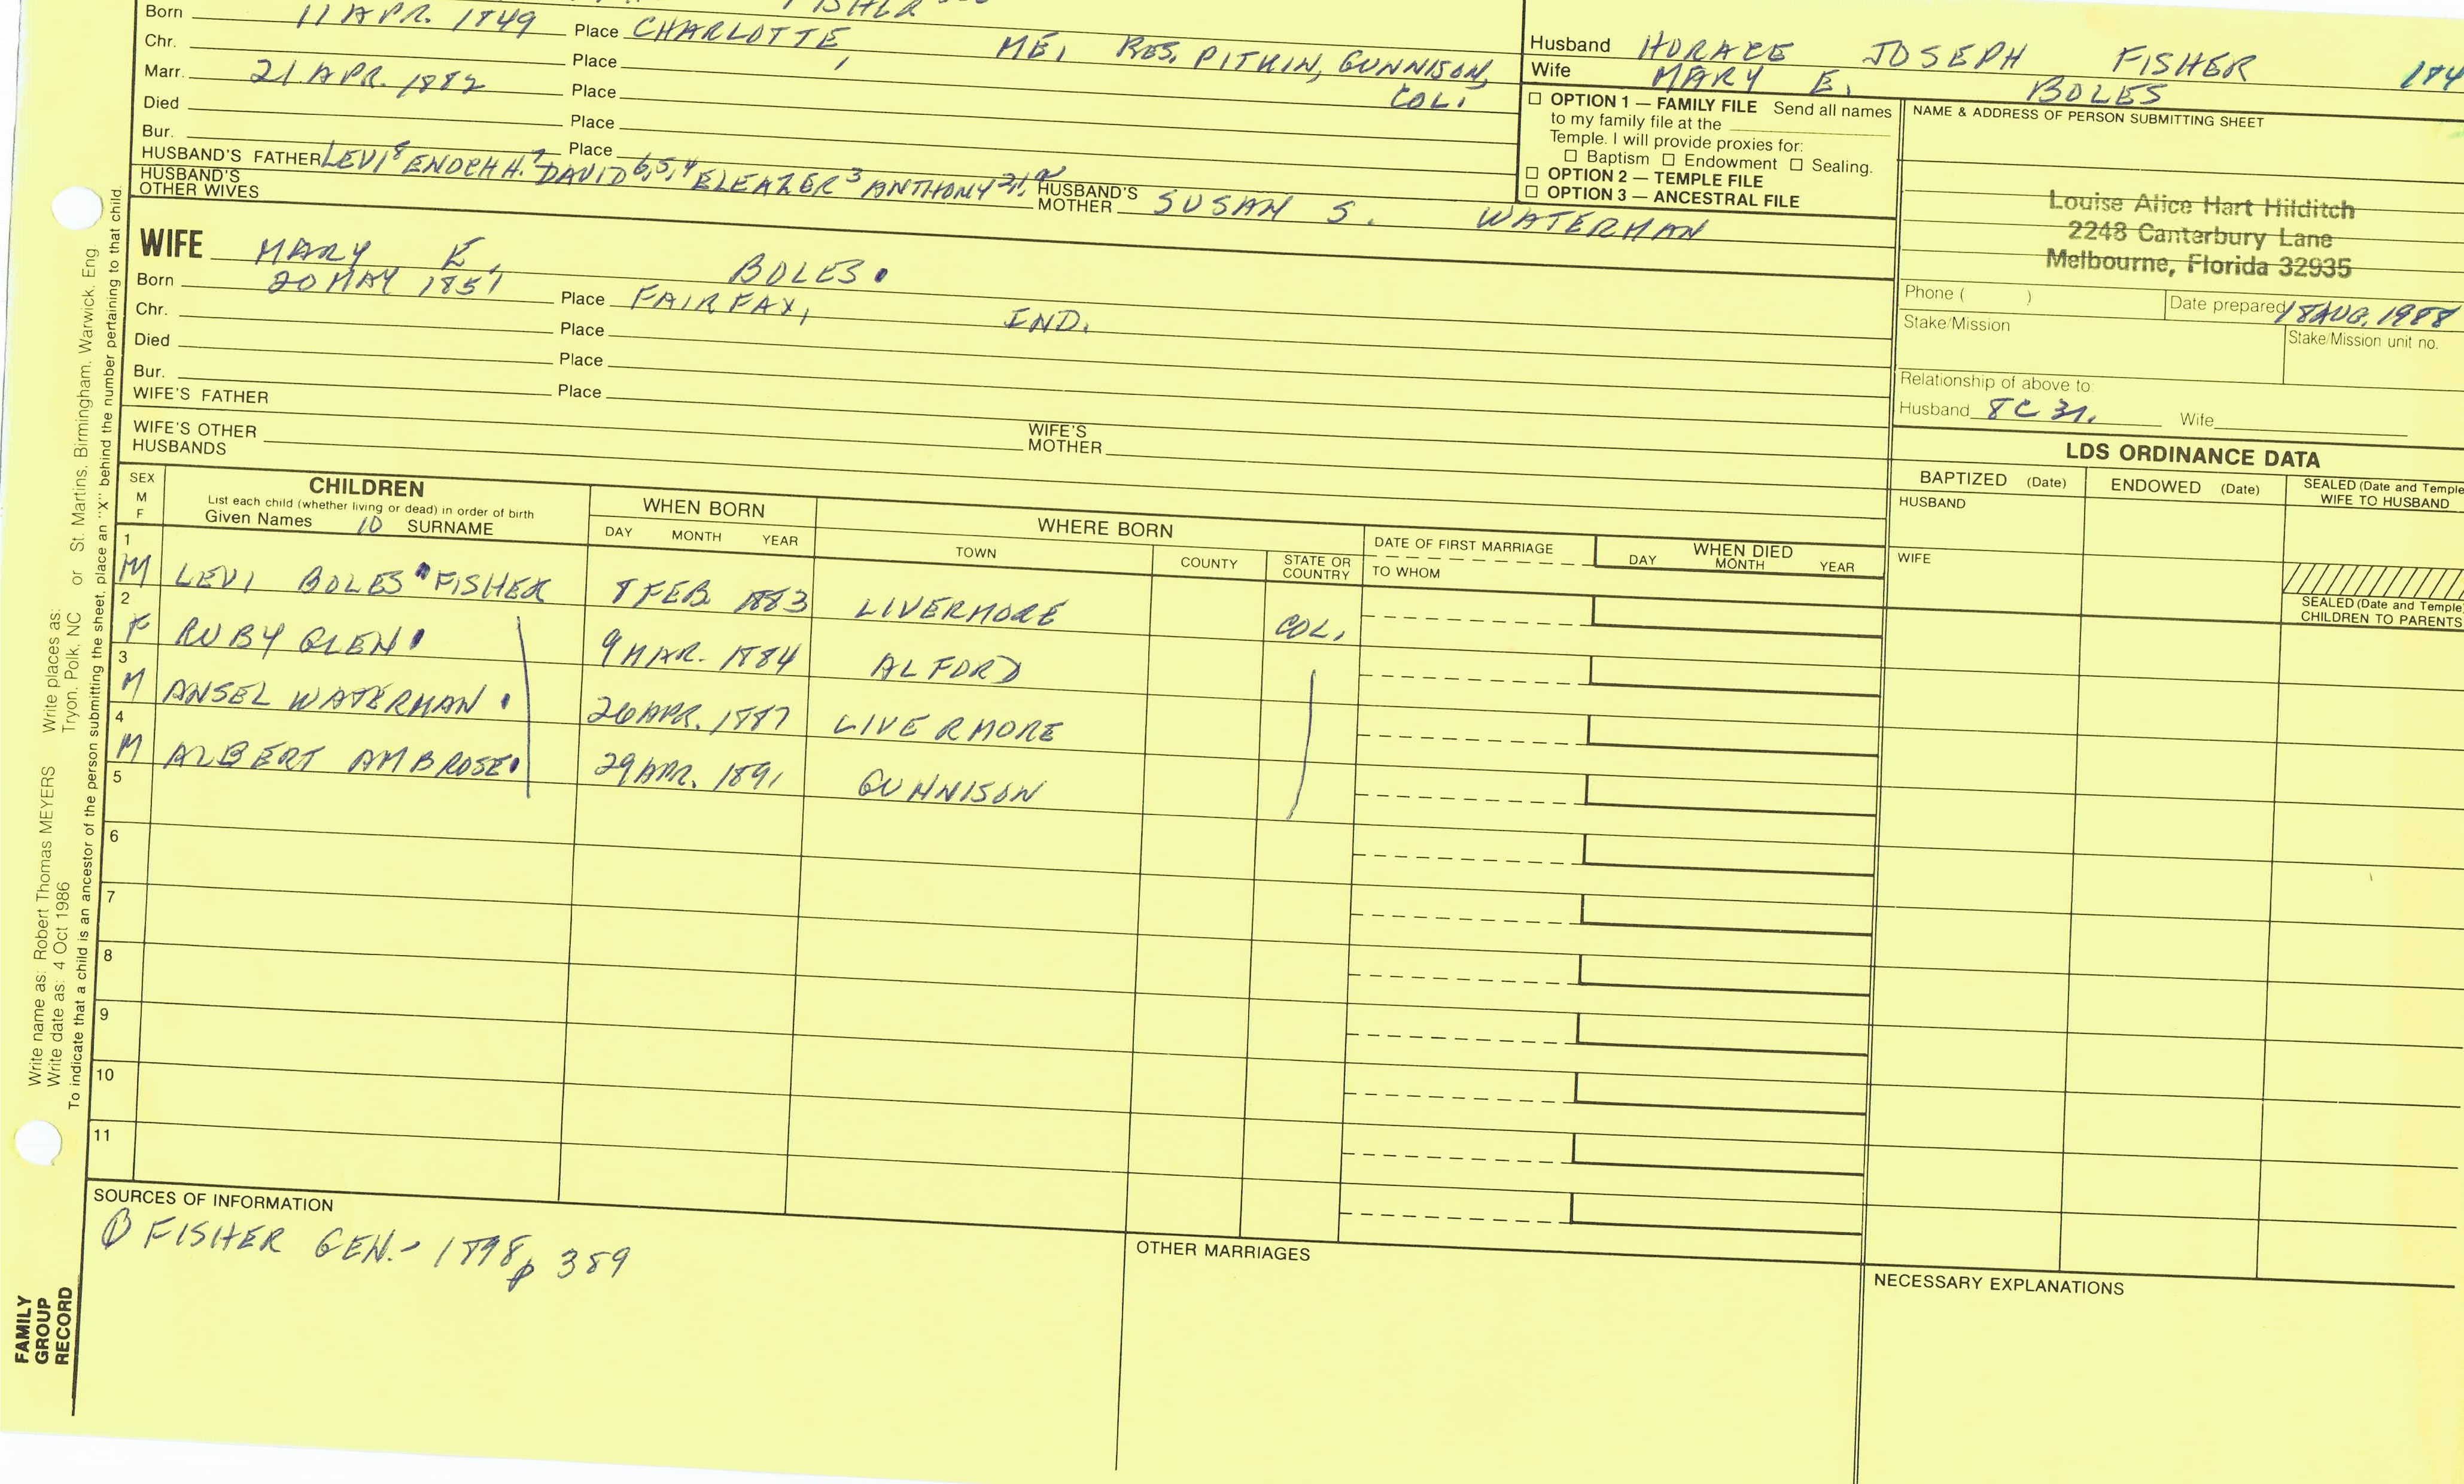 FISHER
Born 11 APR. 1849 Place CHARLOTTE, ME, RES. PITKIN, GUNNISON,
COL.
Chr. Place
Marr. 21 APR. 1882 Place
Died Place
Bur. Place
HUSBAND'S FATHER LEVI 8 ENOCH H. 7 DAVID 6,5,4 ELEAZER 3 ANTHONY 2,1, HUSBAND'S MOTHER SUSAN S. WATERMAN
HUSBAND'S OTHER WIVES
WIFE MARY E. BOLES
Born 20 MAY 1851 Place FAIRFAX, IND.
Chr. Place
Died Place
Bur. Place
WIFE'S FATHER
WIFE'S MOTHER
WIFE'S OTHER HUSBANDS
Husband HORACE JOSEPH FISHER
Wife MARY E. BOLES
☐ OPTION 1 — FAMILY FILE Send all names
to my family file at the
Temple. I will provide proxies for:
☐ Baptism ☐ Endowment ☐ Sealing.
☐ OPTION 2 — TEMPLE FILE
☐ OPTION 3 — ANCESTRAL FILE
NAME & ADDRESS OF PERSON SUBMITTING SHEET
Louise Alice Hart Hilditch
2248 Canterbury Lane
Melbourne, Florida 32935
Phone ( ) Date prepared 18 AUG. 1988
Stake/Mission Stake/Mission unit no.
Relationship of above to:
Husband 8C 3R. Wife
LDS ORDINANCE DATA
BAPTIZED (Date) ENDOWED (Date) SEALED (Date and Temple)
WIFE TO HUSBAND
HUSBAND
WIFE
SEALED (Date and Temple)
CHILDREN TO PARENTS
SEX
M
F
CHILDREN
List each child (whether living or dead) in order of birth
Given Names 10 SURNAME
WHEN BORN
DAY MONTH YEAR
WHERE BORN
TOWN COUNTY STATE OR COUNTRY
DATE OF FIRST MARRIAGE
TO WHOM
WHEN DIED
DAY MONTH YEAR
1 M LEVI BOLES FISHER 8 FEB. 1883 LIVERMORE COL.
2 F RUBY GLEN 9 MAR. 1884 ALFORD
3 M ANSEL WATERMAN 26 APR. 1887 LIVERMORE
4 M ALBERT AMBROSE 29 APR. 1891 GUNNISON
5
6
7
8
9
10
11
SOURCES OF INFORMATION
① FISHER GEN. - 1898 p 389
OTHER MARRIAGES
NECESSARY EXPLANATIONS
Write name as: Robert Thomas MEYERS Write places as: Tryon, Polk, NC or St. Martins, Birmingham, Warwick, Eng
Write date as: 4 Oct 1986
To indicate that a child is an ancestor of the person submitting the sheet, place an "X" behind the number pertaining to that child.
FAMILY
GROUP
RECORD